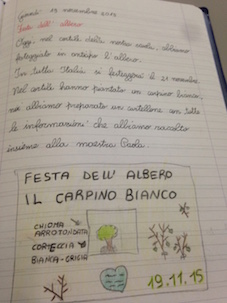 Giovedì 19 novembre 2015
Festa dell'albero
Oggi, nel cortile della nostra scuola, abbiamo
festeggiato in anticipo l'albero.
In tutta Italia si festeggerà il 21 novembre.
Nel cortile hanno piantato un carpino bianco,
noi abbiamo preparato un cartellone con tutte
le informazioni che abbiamo raccolto
insieme alla maestra Paola.
FESTA DELL'ALBERO
IL CARPINO BIANCO
CHIOMA
ARROTONDATA
CORTECCIA
BIANCA-GRIGIA
19.11.15